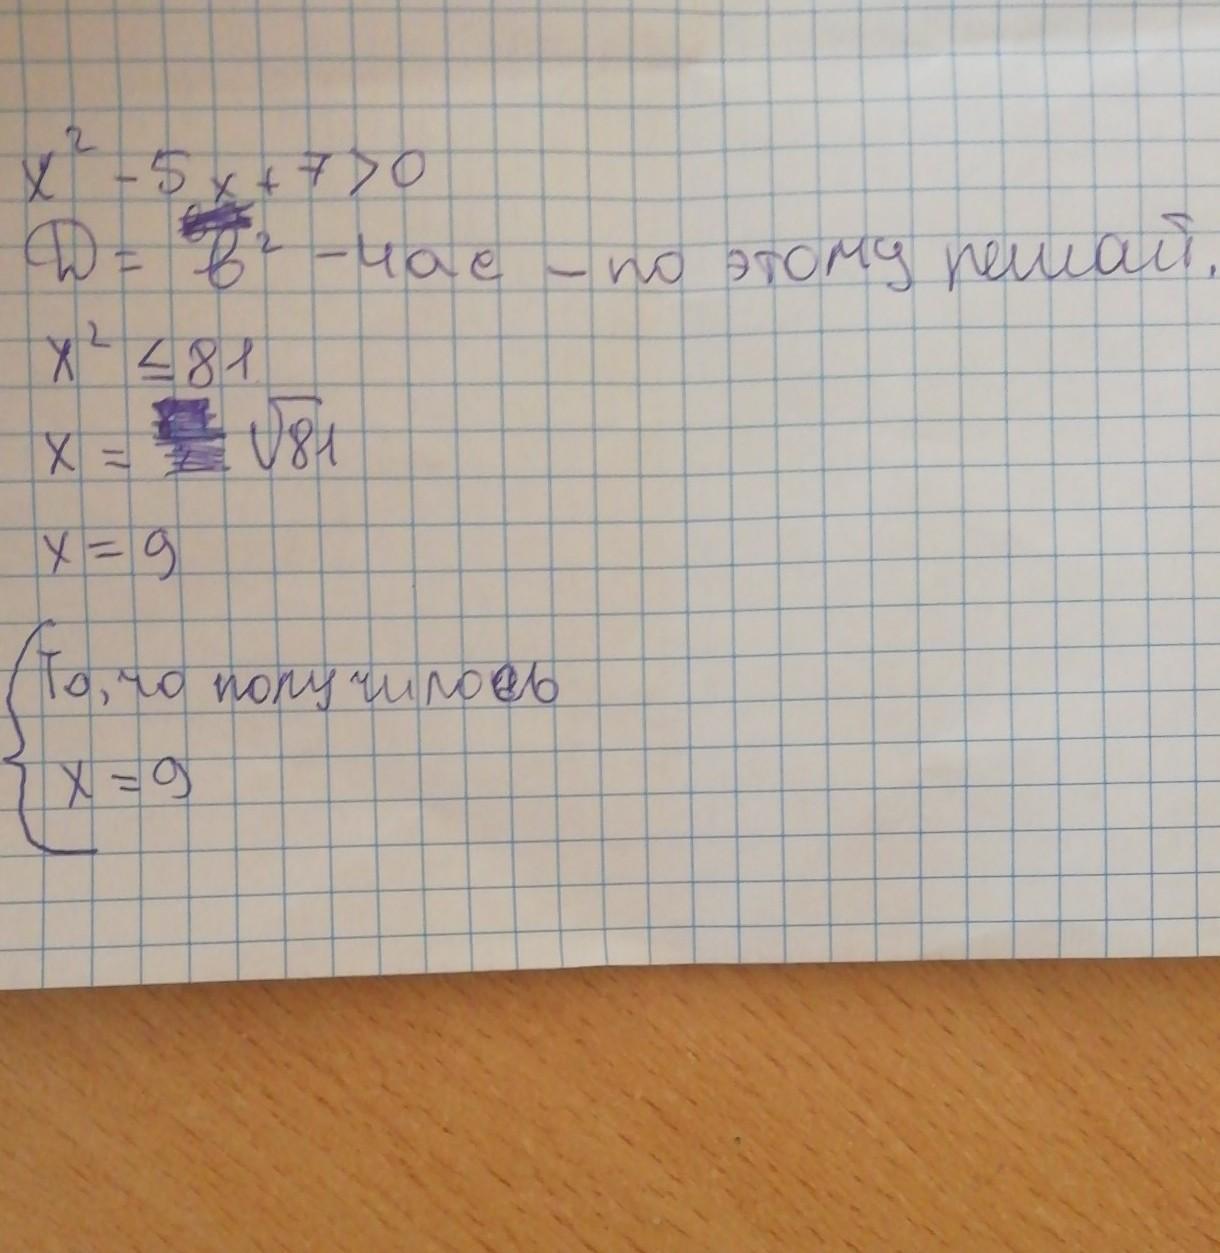 x² - 5x + 7 > 0
D = b² - 4ac - по этому решай.
x² ≤ 81
x = √81
x = 9
То, чо получилось
x = 9